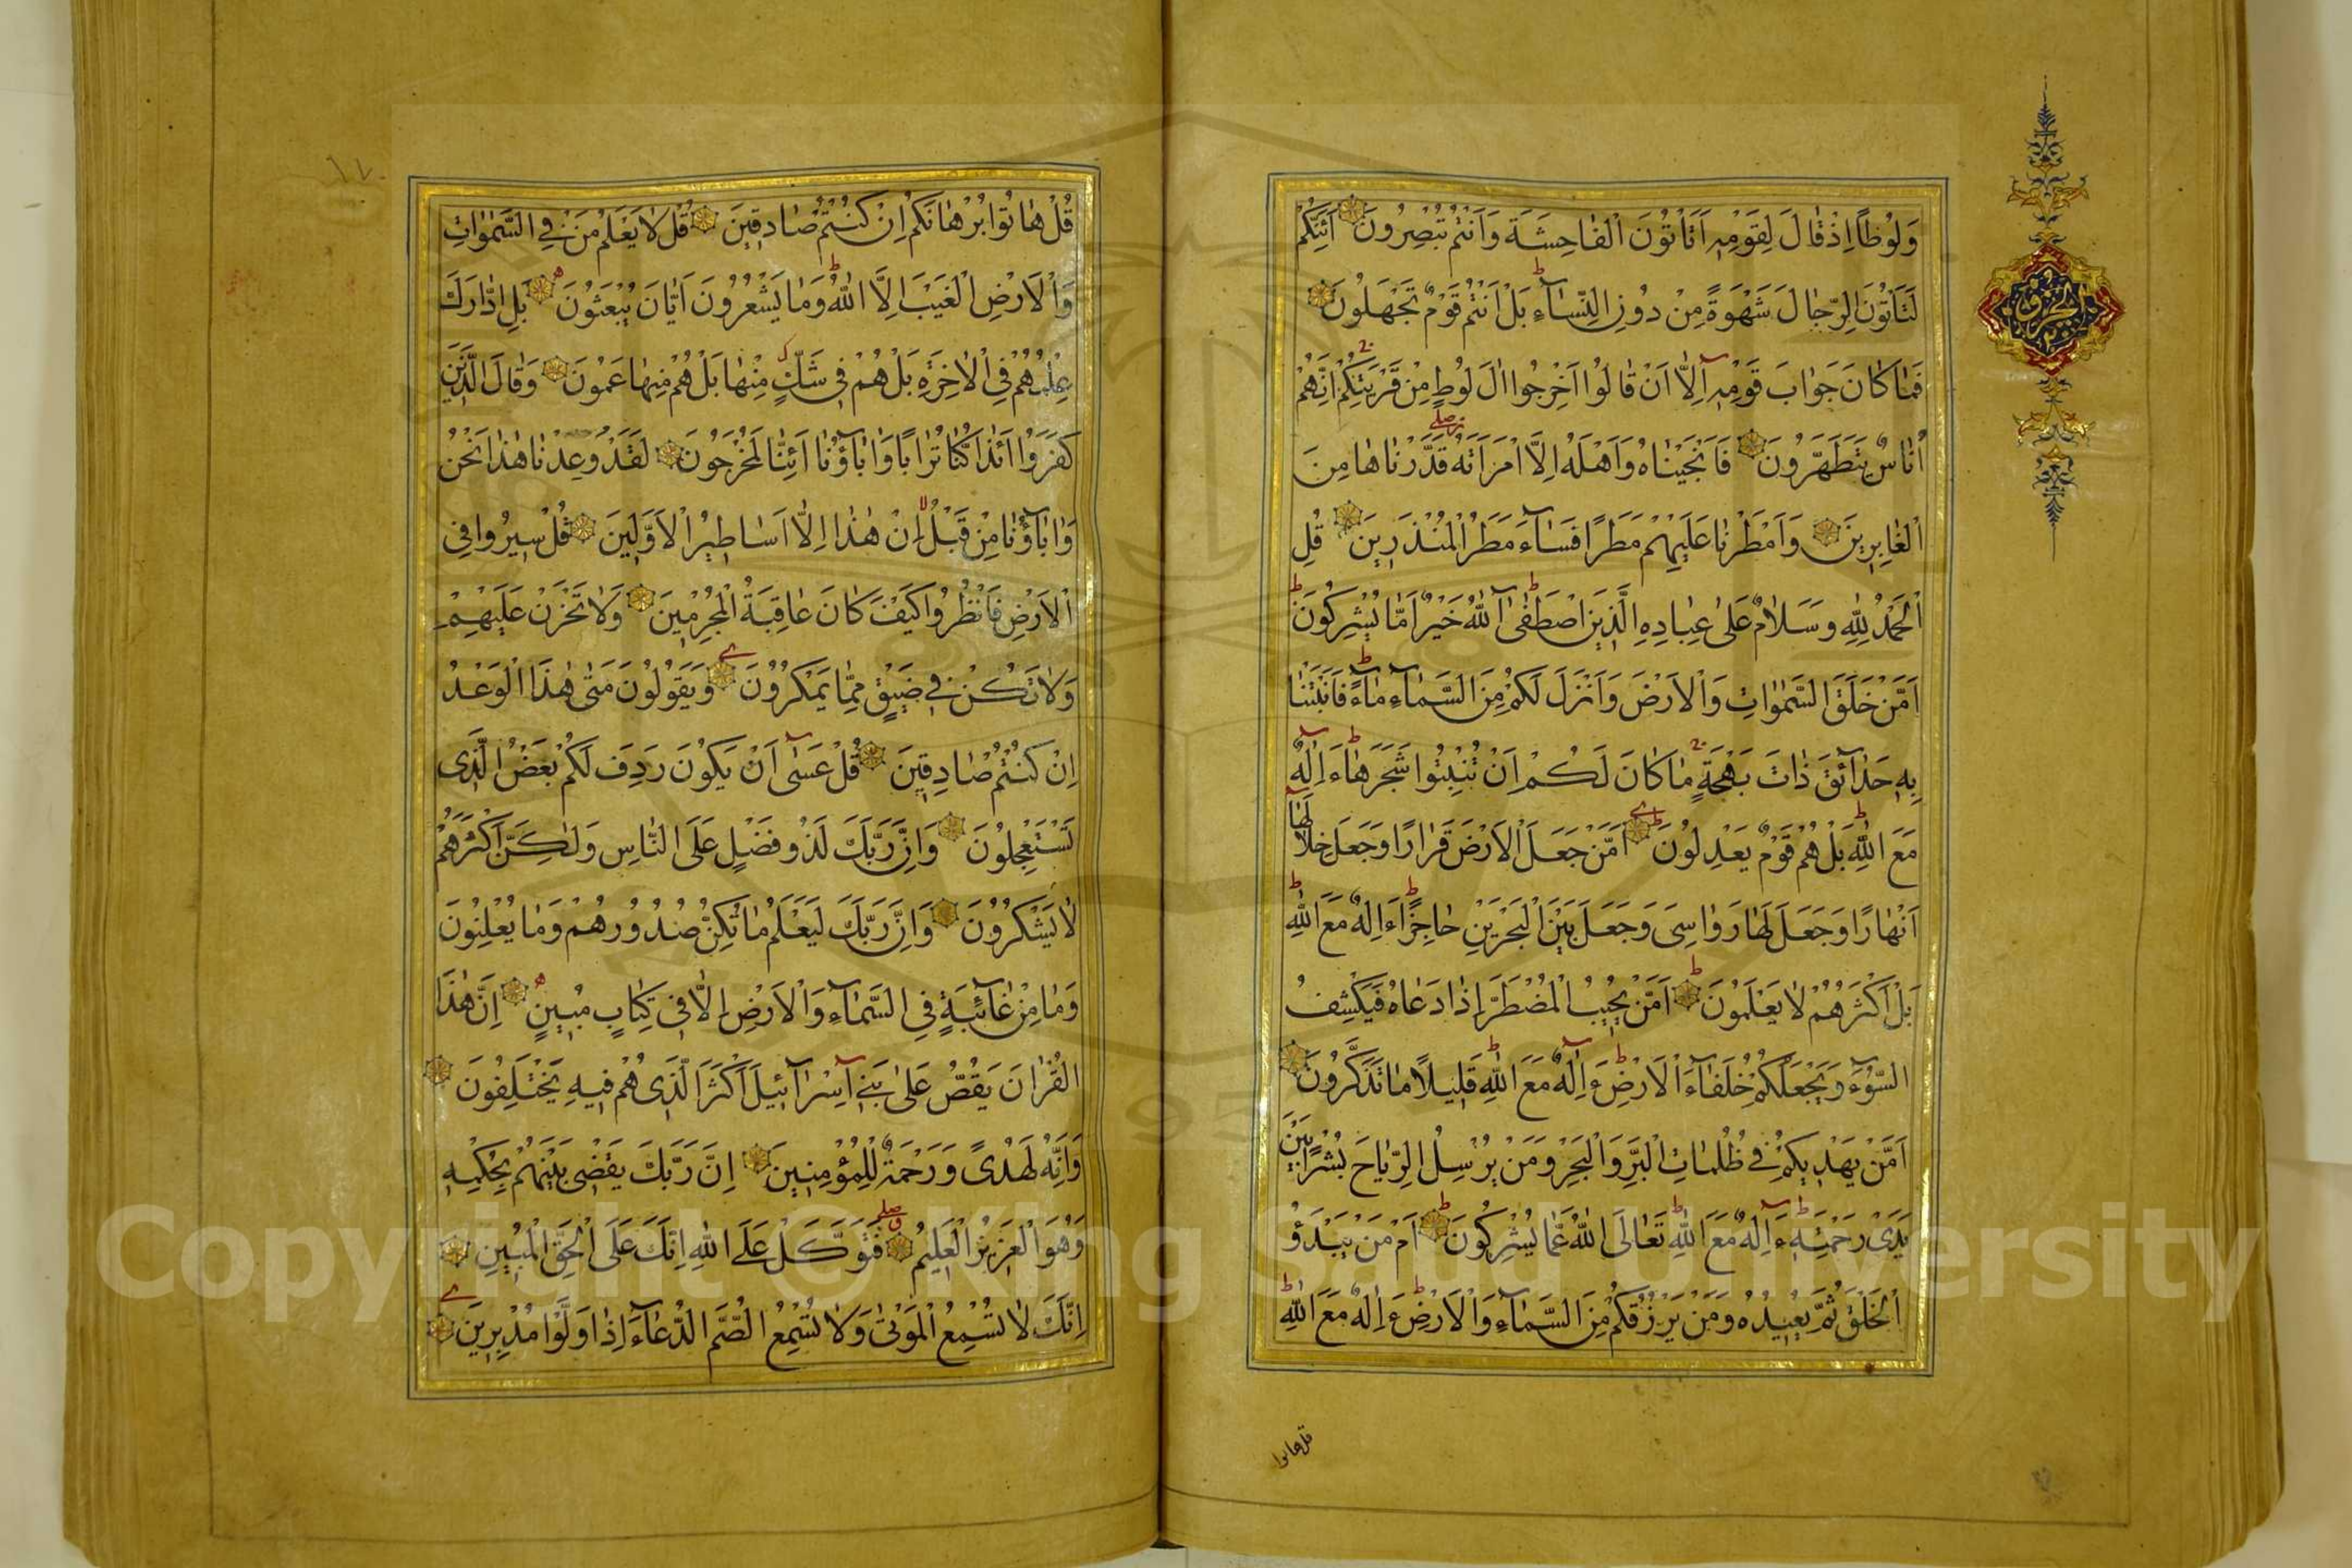 وَلُوطًا اِذْ قَالَ لِقَوْمِهِ اَتَأْتُونَ الْفَاحِشَةَ وَاَنْتُمْ تُبْصِرُونَ اَئِنَّكُمْ
لَتَأْتُونَ الرِّجَالَ شَهْوَةً مِنْ دُونِ النِّسَآءِ بَلْ اَنْتُمْ قَوْمٌ تَجْهَلُونَ
فَمَا كَانَ جَوَابَ قَوْمِهِ اِلَّا اَنْ قَالُوا اَخْرِجُوا الَ لُوطٍ مِنْ قَرْيَتِكُمْ اِنَّهُمْ
اُنَاسٌ يَتَطَهَّرُونَ فَاَنْجَيْنَاهُ وَاَهْلَهُ اِلَّا امْرَاَتَهُ قَدَّرْنَاهَا مِنَ
الْغَابِرِينَ وَاَمْطَرْنَا عَلَيْهِمْ مَطَرًا فَسَآءَ مَطَرُ الْمُنْذَرِينَ قُلِ
الْحَمْدُ لِلّٰهِ وَسَلَامٌ عَلٰى عِبَادِهِ الَّذِينَ اصْطَفٰى آللّٰهُ خَيْرٌ اَمَّا يُشْرِكُونَ
اَمَّنْ خَلَقَ السَّمٰوَاتِ وَالْاَرْضَ وَاَنْزَلَ لَكُمْ مِنَ السَّمَآءِ مَآءً فَاَنْبَتْنَا
بِهِ حَدَآئِقَ ذَاتَ بَهْجَةٍ مَا كَانَ لَكُمْ اَنْ تُنْبِتُوا شَجَرَهَا ءَاِلٰهٌ
مَعَ اللّٰهِ بَلْ هُمْ قَوْمٌ يَعْدِلُونَ اَمَّنْ جَعَلَ الْاَرْضَ قَرَارًا وَجَعَلَ خِلَالَهَا
اَنْهَارًا وَجَعَلَ لَهَا رَوَاسِىَ وَجَعَلَ بَيْنَ الْبَحْرَيْنِ حَاجِزًا ءَاِلٰهٌ مَعَ اللّٰهِ
بَلْ اَكْثَرُهُمْ لَا يَعْلَمُونَ اَمَّنْ يُجِيبُ الْمُضْطَرَّ اِذَا دَعَاهُ فَيَكْشِفُ
السُّوٓءَ وَيَجْعَلُكُمْ خُلَفَآءَ الْاَرْضِ ءَاِلٰهٌ مَعَ اللّٰهِ قَلِيلًا مَا تَذَكَّرُونَ
اَمَّنْ يَهْدِيكُمْ فِى ظُلُمَاتِ الْبَرِّ وَالْبَحْرِ وَمَنْ يُرْسِلُ الرِّيَاحَ بُشْرًا بَيْنَ
يَدَىْ رَحْمَتِهِ ءَاِلٰهٌ مَعَ اللّٰهِ تَعَالَى اللّٰهُ عَمَّا يُشْرِكُونَ اَمْ مَنْ يَبْدَؤُ
الْخَلْقَ ثُمَّ يُعِيدُهُ وَمَنْ يَرْزُقُكُمْ مِنَ السَّمَآءِ وَالْاَرْضِ ءَاِلٰهٌ مَعَ اللّٰهِ
قل هاتوا
قُلْ هَاتُوا بُرْهَانَكُمْ اِنْ كُنْتُمْ صَادِقِينَ قُلْ لَا يَعْلَمُ مَنْ فِى السَّمٰوَاتِ
وَالْاَرْضِ الْغَيْبَ اِلَّا اللّٰهُ وَمَا يَشْعُرُونَ اَيَّانَ يُبْعَثُونَ بَلِ ادَّارَكَ
عِلْمُهُمْ فِى الْاٰخِرَةِ بَلْ هُمْ فِى شَكٍّ مِنْهَا بَلْ هُمْ مِنْهَا عَمُونَ وَقَالَ الَّذِينَ
كَفَرُوا اَئِذَا كُنَّا تُرَابًا وَاٰبَآؤُنَا اَئِنَّا لَمُخْرَجُونَ لَقَدْ وُعِدْنَا هٰذَا نَحْنُ
وَاٰبَآؤُنَا مِنْ قَبْلُ اِنْ هٰذَا اِلَّا اَسَاطِيرُ الْاَوَّلِينَ قُلْ سِيرُوا فِى
الْاَرْضِ فَانْظُرُوا كَيْفَ كَانَ عَاقِبَةُ الْمُجْرِمِينَ وَلَا تَحْزَنْ عَلَيْهِمْ
وَلَا تَكُنْ فِى ضَيْقٍ مِمَّا يَمْكُرُونَ وَيَقُولُونَ مَتٰى هٰذَا الْوَعْدُ
اِنْ كُنْتُمْ صَادِقِينَ قُلْ عَسٰى اَنْ يَكُونَ رَدِفَ لَكُمْ بَعْضُ الَّذِى
تَسْتَعْجِلُونَ وَاِنَّ رَبَّكَ لَذُو فَضْلٍ عَلَى النَّاسِ وَلٰكِنَّ اَكْثَرَهُمْ
لَا يَشْكُرُونَ وَاِنَّ رَبَّكَ لَيَعْلَمُ مَا تُكِنُّ صُدُورُهُمْ وَمَا يُعْلِنُونَ
وَمَا مِنْ غَآئِبَةٍ فِى السَّمَآءِ وَالْاَرْضِ اِلَّا فِى كِتَابٍ مُبِينٍ اِنَّ هٰذَا
الْقُرْاٰنَ يَقُصُّ عَلٰى بَنِى اِسْرَآئِيلَ اَكْثَرَ الَّذِى هُمْ فِيهِ يَخْتَلِفُونَ
وَاِنَّهُ لَهُدًى وَرَحْمَةٌ لِلْمُؤْمِنِينَ اِنَّ رَبَّكَ يَقْضِى بَيْنَهُمْ بِحُكْمِهِ
وَهُوَ الْعَزِيزُ الْعَلِيمُ فَتَوَكَّلْ عَلَى اللّٰهِ اِنَّكَ عَلَى الْحَقِّ الْمُبِينِ
اِنَّكَ لَا تُسْمِعُ الْمَوْتٰى وَلَا تُسْمِعُ الصُّمَّ الدُّعَآءَ اِذَا وَلَّوْا مُدْبِرِينَ
Copyright © King Saud University